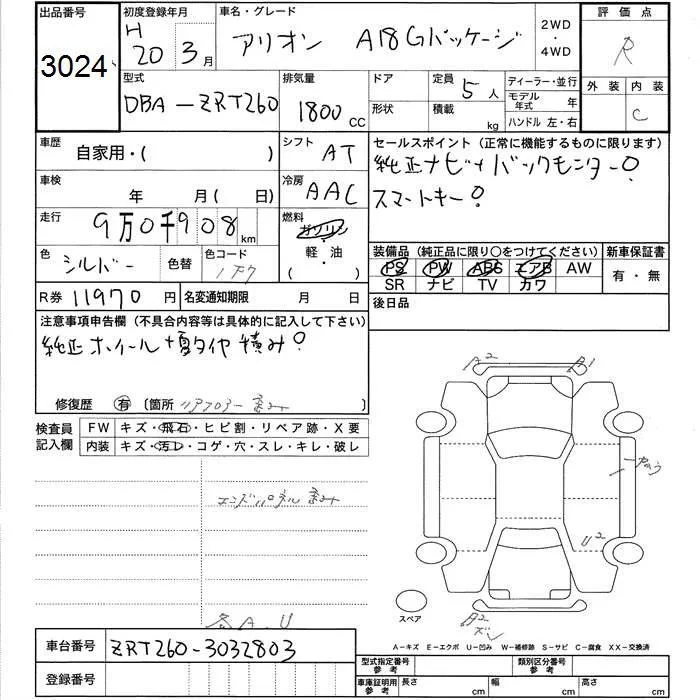 出品番号 初度登録年月 車名・グレード 2WD ・ 4WD 評価点
3024 H 20 3月 アリオン A18Gパッケージ R
型式 排気量 ドア 定員 ディーラー・並行 外装 内装
DBA-ZRT260 1800 CC 5人 モデル年式 年 C
形状 積載 kg ハンドル 左・右
車歴 自家用・( ) シフト AT セールスポイント (正常に機能するものに限ります)
純正ナビ バックモニター
車検 年 月 ( 日) 冷房 AAC スマートキー
走行 9万0千908km 燃料 ガソリン ・ 軽・油 ( )
装備品 (純正品に限り○をつけてください) 新車保証書
色 シルバー 色替 色コード PS PW ABS エアB AW 有・無
SR ナビ TV カワ
R券 11970円 名変通知期限 月 日 後日品
注意事項申告欄 (不具合内容等は具体的に記入して下さい)
純正ホイール 積み
修復歴 有 〔箇所 リアフロアー 〕
検査員記入欄 FW キズ・飛石・ヒビ割・リペア跡・X要
内装 キズ・汚レ・コゲ・穴・スレ・キレ・破レ
A2 B1
エンドパネル
U2
スペア
A2
各A.U
A-キズ E-エクボ U-凹み W-補修跡 S-サビ C-腐食 XX-交換済
車台番号 ZRT260-3032803
型式指定番号 参考 類別区分番号 参考
登録番号 車庫証明用 参考 長さ cm 幅 cm 高さ cm